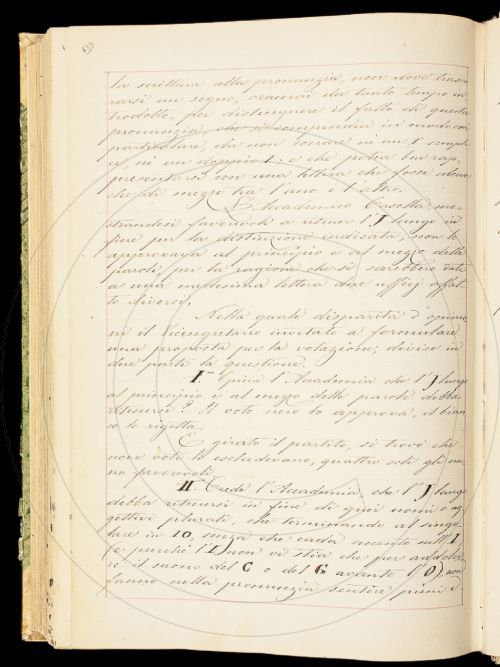 la scrittura alla pronunzia, non deve trascu-
rarsi un segno, oramai da tanto tempo in-
trodotto, per distinguere il fatto di questa
pronunzia, che si compendia in modo così
particolare, da non sonare nè un I sempli-
ce, nè un doppio I; e che potea ben rap-
presentarsi con una lettera che fosse alcun
che di mezzo tra l'uno e l'altro.
L'Accademico Casella mo-
strandosi favorevole a ritener l'J lungo in
fine per la distinzione indicata, non lo
approvava al principio e al mezzo delle
parole, per la ragione che si sarebbero dati
a una medesima lettera due ufficj affat-
to diversi.
Nella quale disparità d'opinio-
ni il Vicesegretario invitato a formulare
una proposta per la votazione, divise in
due parte la questione.
I. Opina l'Accademia che l'J lungo
al principio e al mezzo delle parole debba
ritenersi? Il voto nero lo approva, il bian-
co lo rigetta.
E girato il partito, si trovò che
nove voti lo escludevano, quattro soli gli era-
no favorevoli.
II. Crede l'Accademia, che l'J lungo
debba ritenersi in fine di quei nomi e ag-
gettivi plurali, che terminando al singo-
lare in IO, senza che cada accento sull'I
(e purchè l'I non vi stia che per addolci-
re il suono del C e del G avanti l'O) non
fanno nella pronunzia sentire pieni i